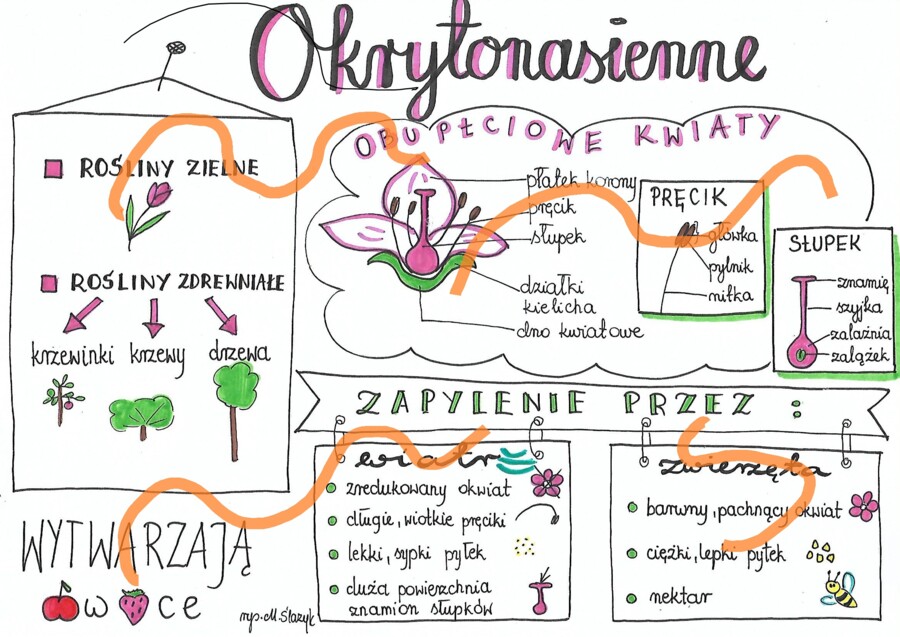 Okrytonasienne
ROŚLINY ZIELNE
ROŚLINY ZDREWNIAŁE
krzewinki krzewy drzewa
WYTWARZAJĄ
owoce
OBUPŁCIOWE KWIATY
płatek korony
pręcik
słupek
działki
kielicha
dno kwiatowe
PRĘCIK
główka
pylnik
nitka
SŁUPEK
znamię
szyjka
zalążnia
zalążek
ZAPYLENIE PRZEZ :
wiatr
zredukowany okwiat
długie, wiotkie pręciki
lekki, sypki pyłek
duża powierzchnia
znamion słupków
zwierzęta
barwny, pachnący okwiat
ciężki, lepki pyłek
nektar
rys. M. Ślazyk